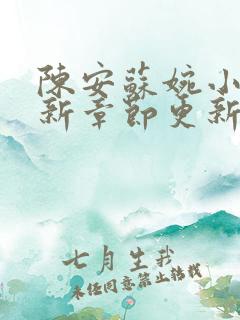 陳安蘇婉小
新章節更新
七月生我
未經同意禁止轉載